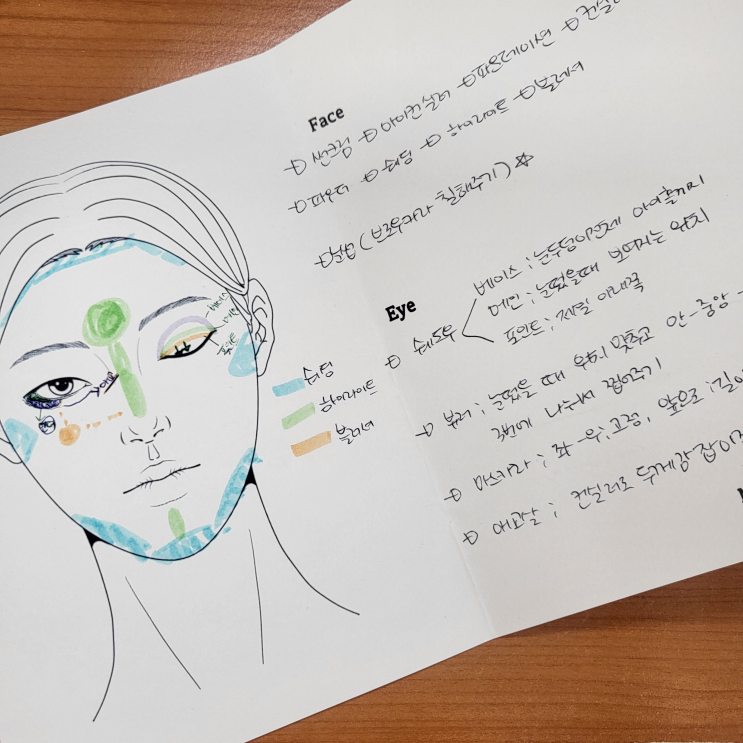 Face
→ 썬크림 → 아이컨실러 → 파운데이션 → 컨실
→ 파우더 → 쉐딩 → 하이라이트 → 블러셔
→ 눈썹 (브로우카라 칠해주기) ☆
Eye
→ 쉐도우
베이스 ; 눈두덩이전체 아이홀까지
메인 ; 눈떴을때 보여지는 위치
포인트 ; 제일 아래쪽
→ 뷰러 ; 눈떴을 때 위치 맞추고 안-중앙-
3번에 나눠서 찝어주기
→ 마스카라 ; 좌-우;고정, 앞으로;길이
→ 애교살 ; 컨실러로 두께감 잡아
쉐딩
하이라이트
블러셔
베이스
메인
포인트